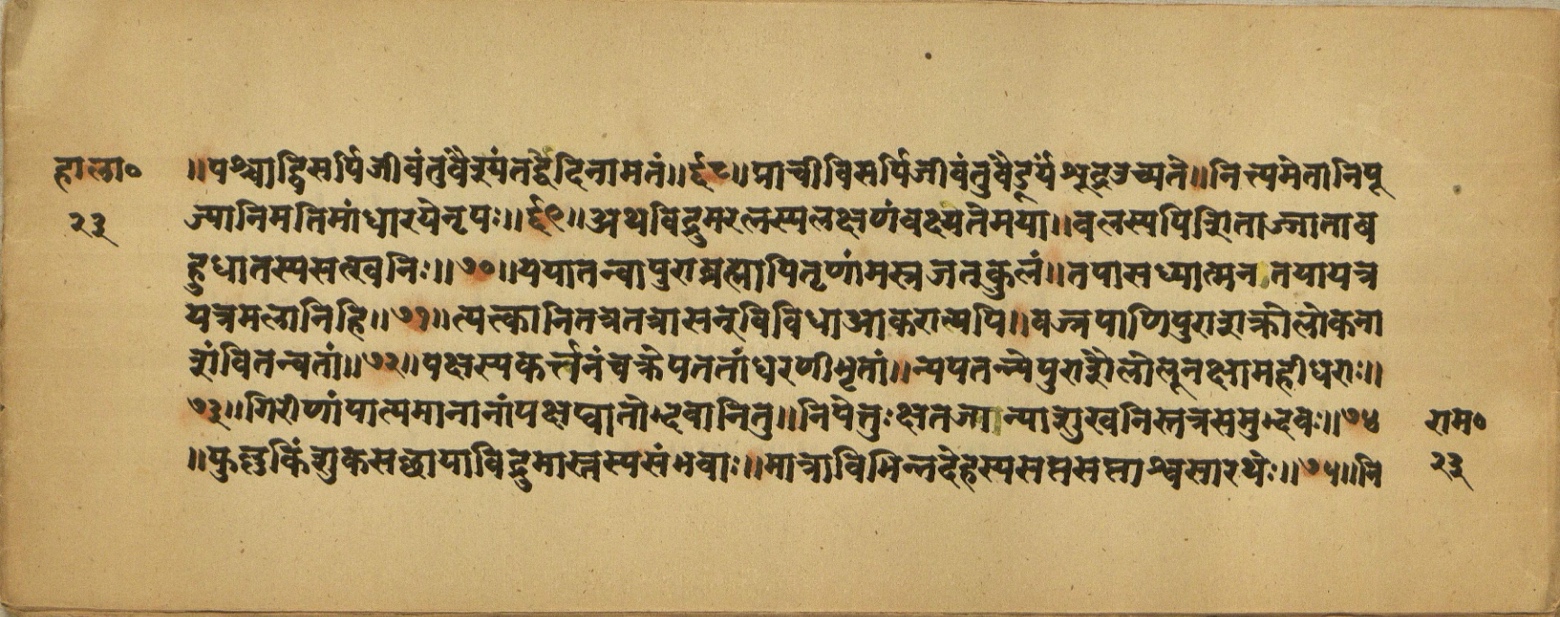 हाला० ॥पश्चाद्विसर्पिजीवंतुवैडूयंतद्वेदिनामतं॥६८॥प्राचीविसर्पिजीवंतुवैडूर्यंशूद्रउच्यते॥नित्त्यमेतानिपू
२३ ज्यानिमतिमांधारयेनृपः॥६९॥अथविद्रुमरत्नस्यलक्षणंवक्ष्यतेमया॥वलस्यपिशिताज्जाताब
हुधातस्यसत्खनिः॥७०॥ययातन्वापुराब्रह्मापितृणांमसृजत्कुलं॥तपासध्यात्मन तयायत्र
यत्रमलानिहि॥७१॥त्यत्कानितत्रतत्रासन्विविधाआकरात्यपि॥वज्रपाणिपुराशक्रोलोकना
शंवितन्वतां॥७२॥पक्षस्यकर्त्तनंचक्रेपततांधरणीभृतां॥न्यपतन्त्येपुराशैलोलूनक्षामहीधराः॥
७३॥गिरीणांपात्यमानानांपक्षघातोद्भवानितु॥निपेतुःक्षतजान्याशुखनिस्तत्रसमुद्भवः॥७४ राम०
॥फुल्लकिंशुकसछायाविद्रुमास्तस्यसंभवाः॥मात्राविभिन्नदेहस्यसप्तसप्ताश्वसारथेः॥७५॥नि २३